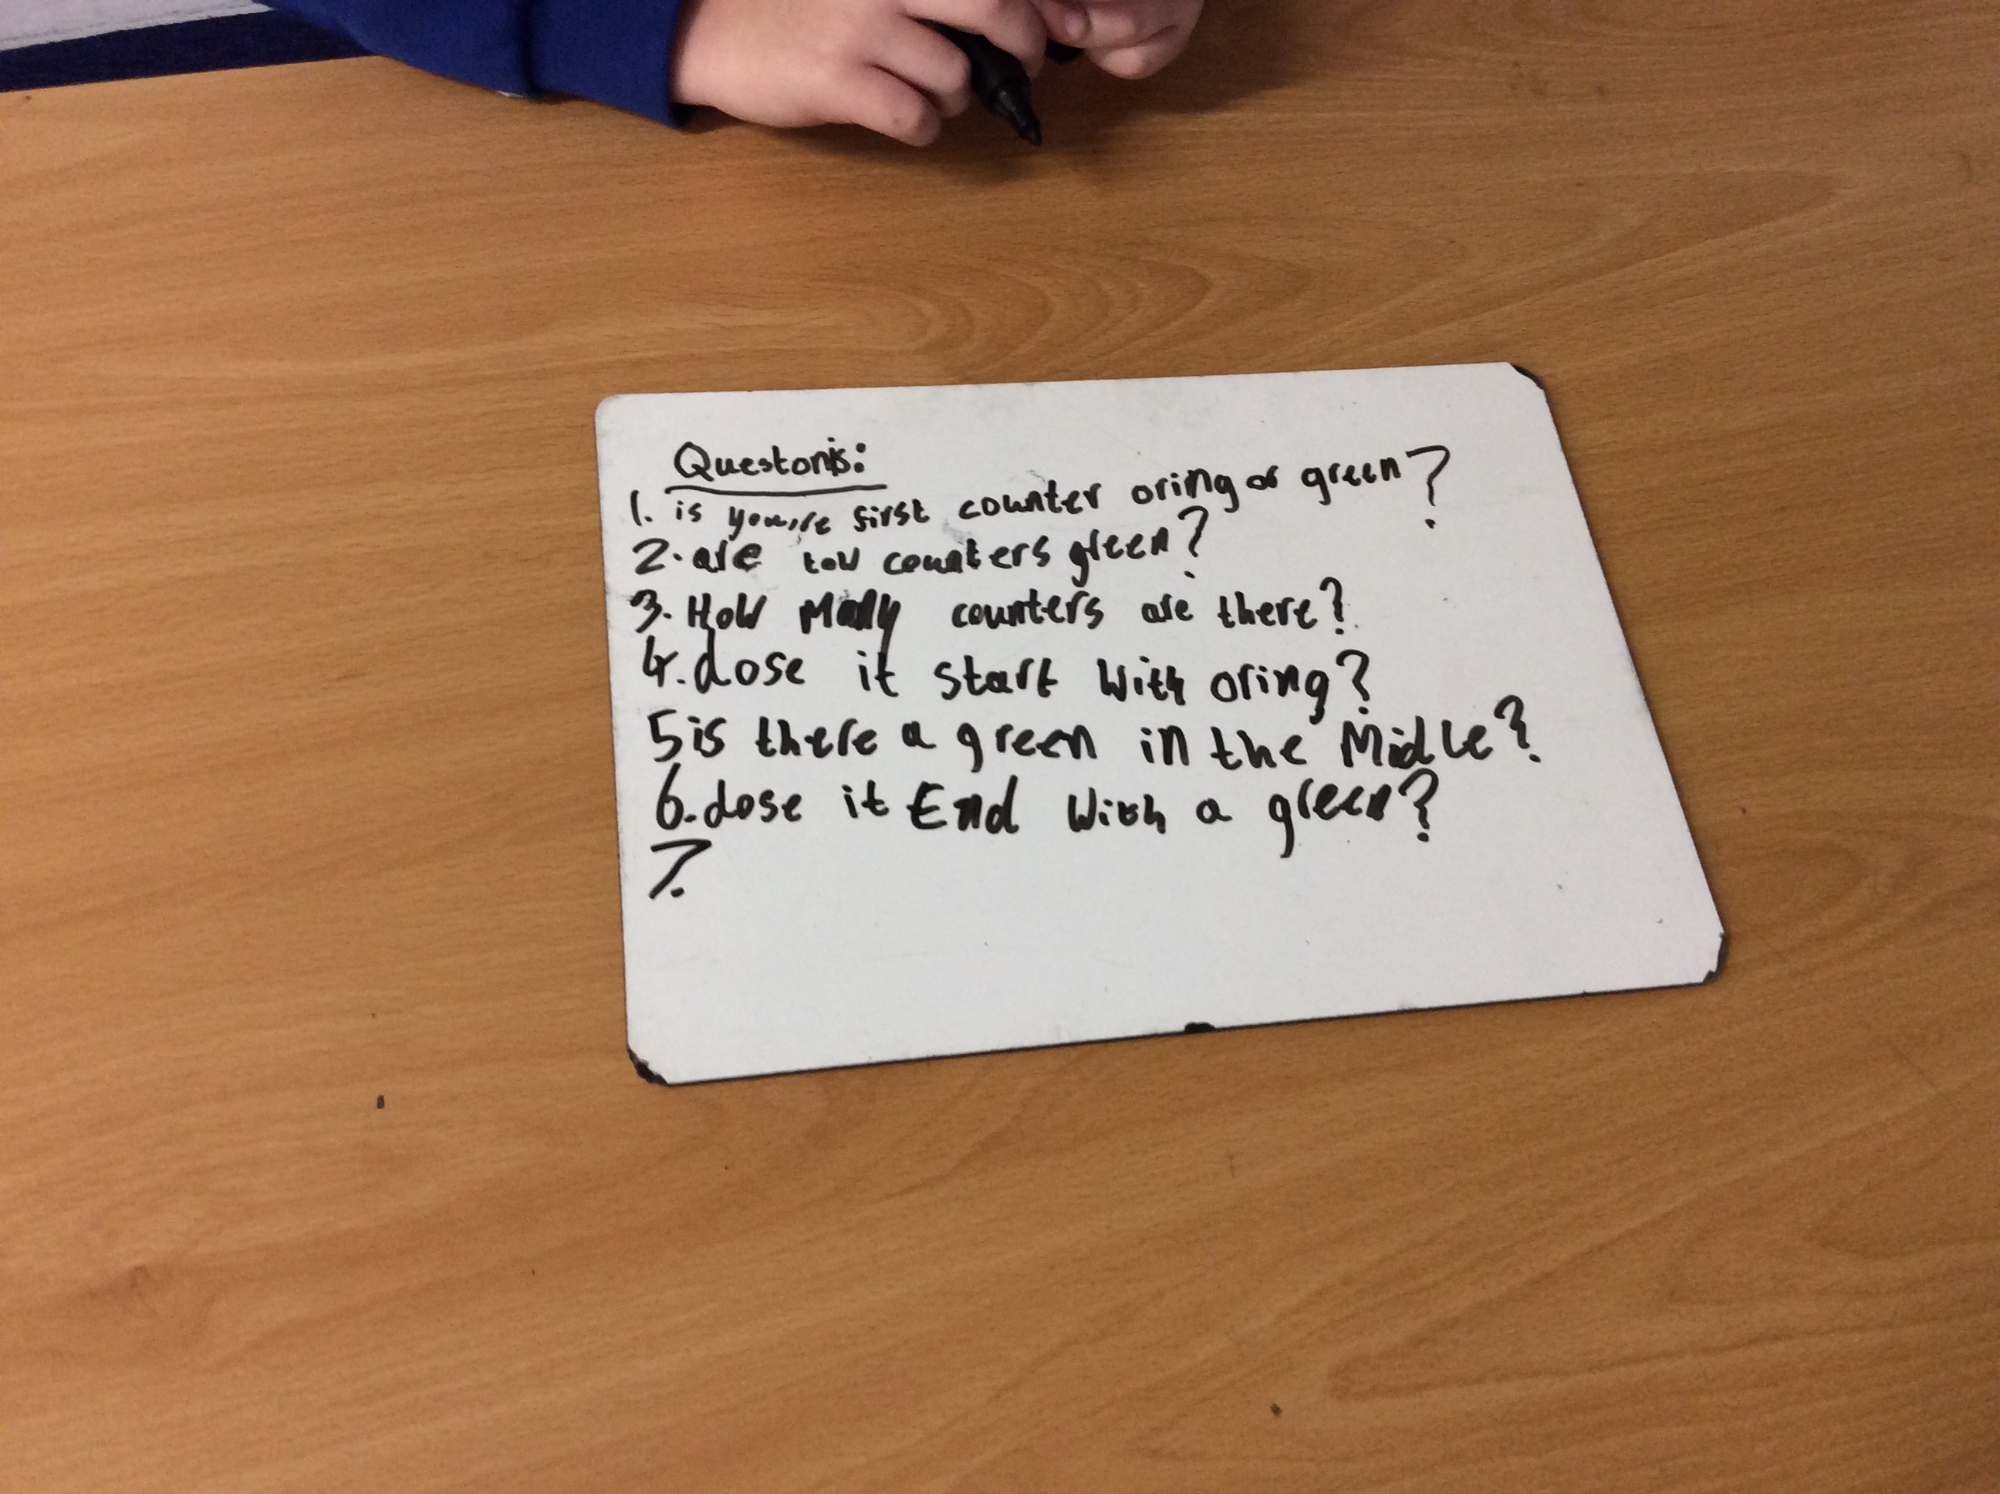 Questonis:
1. is you,re first counter oring or green?
2. are tow counters green?
3. How Many counters are there?
4. dose it start With oring?
5 is there a green in the Midle?
6. dose it End With a green?
7.